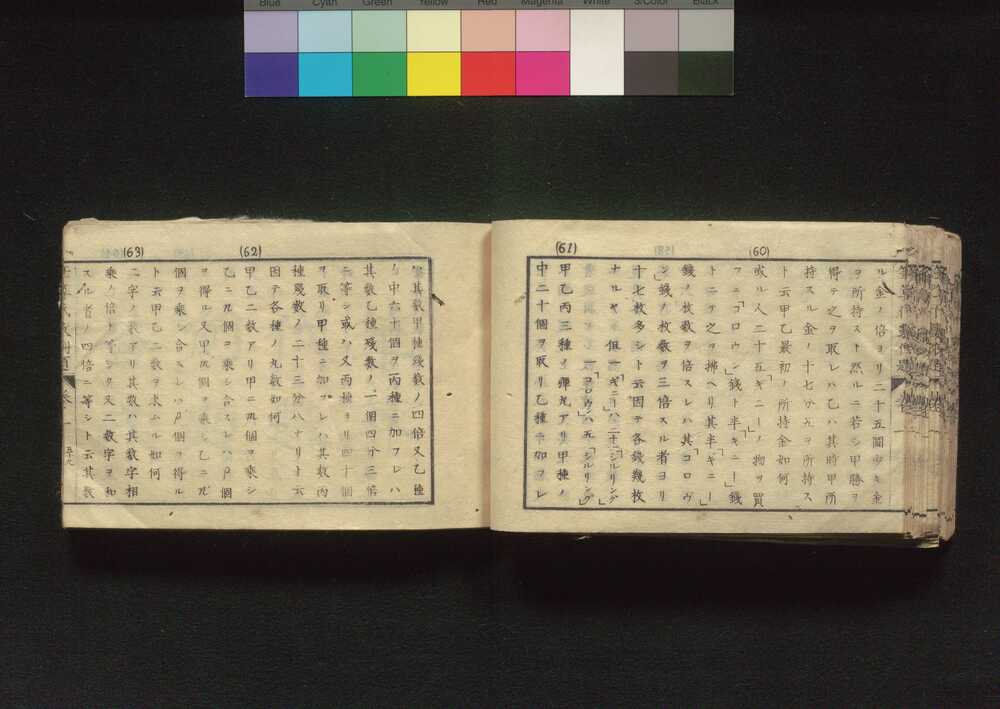 Blue Cyan Green Yellow Red Magenta White 3/Color Black
ル金ノ倍ヨリ二十五圓少キ金
ヲ所持スト然ルニ若シ甲勝ヲ
得テ之ヲ取レハ乙ハ其時甲所
持スル金ノ十七分ノ五ヲ所持ス
ト云甲乙最初ノ所持金如何
(60)
或ル人二十五「ギニー」ノ物ヲ買
フニ「コロウン」錢ト半「ギニー」錢
トニテ之ヲ拂ヘリ其半「ギニー」
錢ノ枚数ヲ倍スレハ其「コロウ
ン」錢ノ枚数ヲ三倍スル者ヨリ
十七枚多シト云因テ各錢幾枚
ナルヤ 但一「ギニー」ハ二十一「シルリング」
一「コロウン」ハ五「シルリング」
(61)
甲乙丙三種ノ彈丸アリ甲種ノ
中二十個ヲ取リ乙種ニ加フレ
ハ其数甲種残数ノ四倍又乙種
ノ中六十個ヲ丙種ニ加フレハ
其数乙種残数ノ一個四分三倍
ニ等シ或ハ又丙種ヨリ四十個
ヲ取リ甲種ニ加フレハ其数丙
種残数ノ二十三分ハナリト云
因テ各種ノ丸数如何
(62)
甲乙二数アリ甲ニ 個ヲ乘シ
乙ニ 個ヲ乘シ合スレハ 個
ヲ得ル又甲 個ヲ乘シ乙ニ
個ヲ乘シ合スレハ 個ヲ得ル
ト云甲乙二数ヲ求ムル如何
(63)
二字ノ数アリ其数ハ其数字相
乘ノ倍ト等シク又二数字ヲ和
スル者ノ四倍ニ等シト云其数